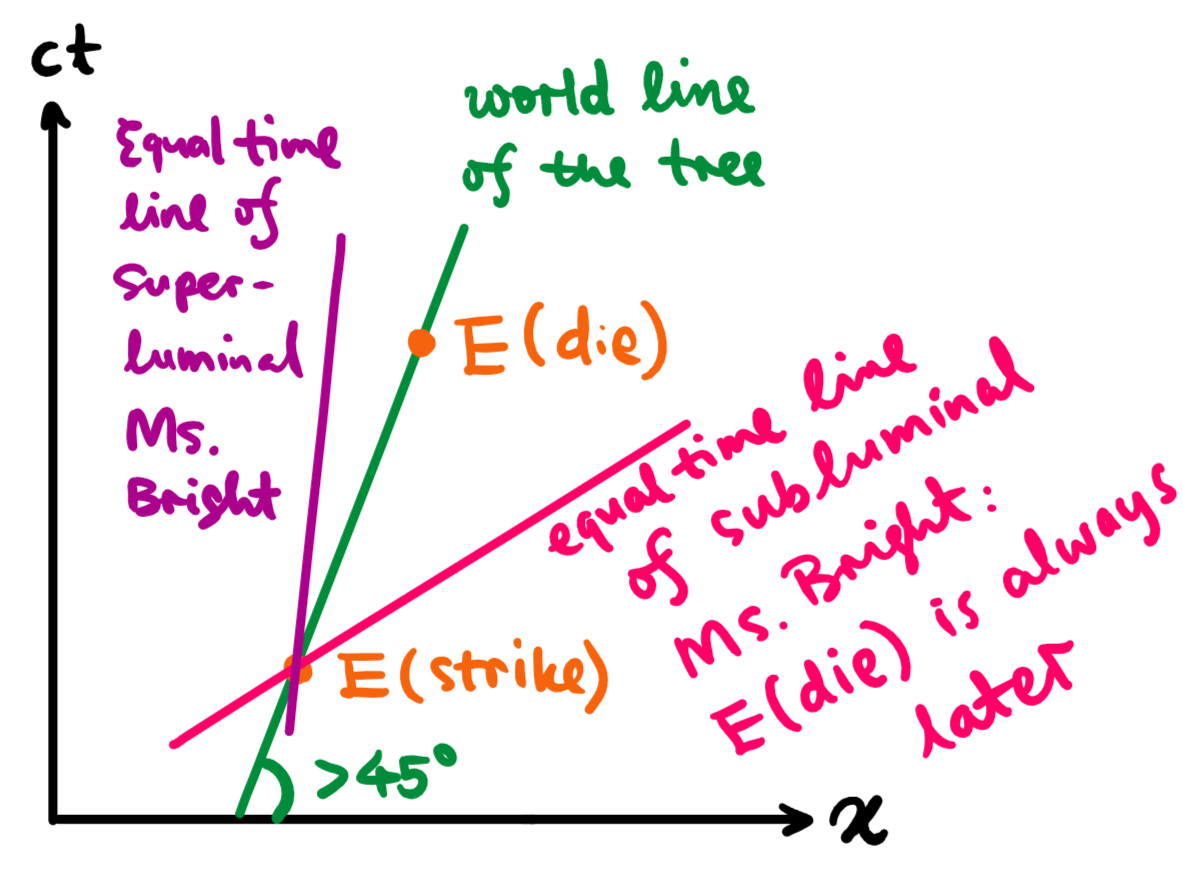 ct
Equal time
line of
super-
luminal
Ms.
Bright
world line
of the tree
E(die)
equal time line
of subluminal
Ms. Bright:
E(die) is always
later
E(strike)
>45°
x